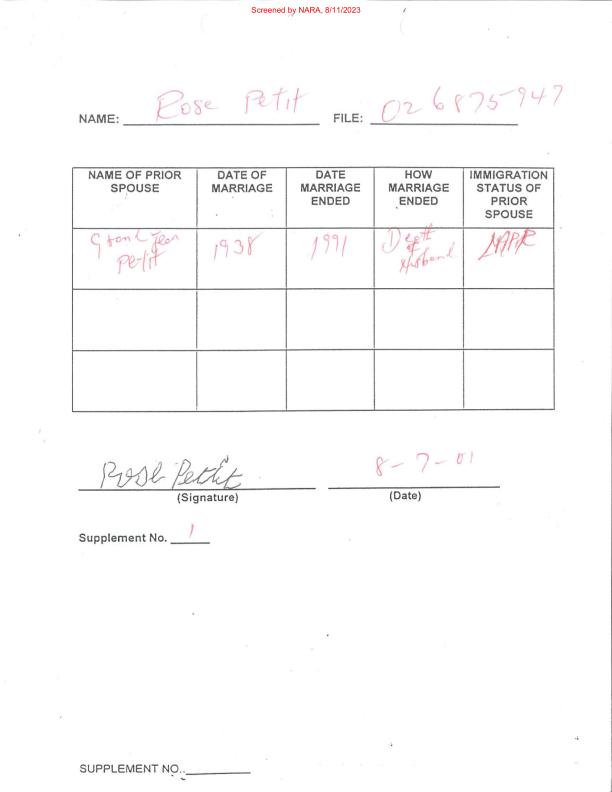 Screened by NARA, 8/11/2023
NAME: Rose Petit FILE: 026875947
NAME OF PRIOR SPOUSE DATE OF MARRIAGE DATE MARRIAGE ENDED HOW MARRIAGE ENDED IMMIGRATION STATUS OF PRIOR SPOUSE
Jean Petit 1938 1991 Death of Husband
Rose Petit 8-7-01
(Signature) (Date)
Supplement No. 1
SUPPLEMENT NO.